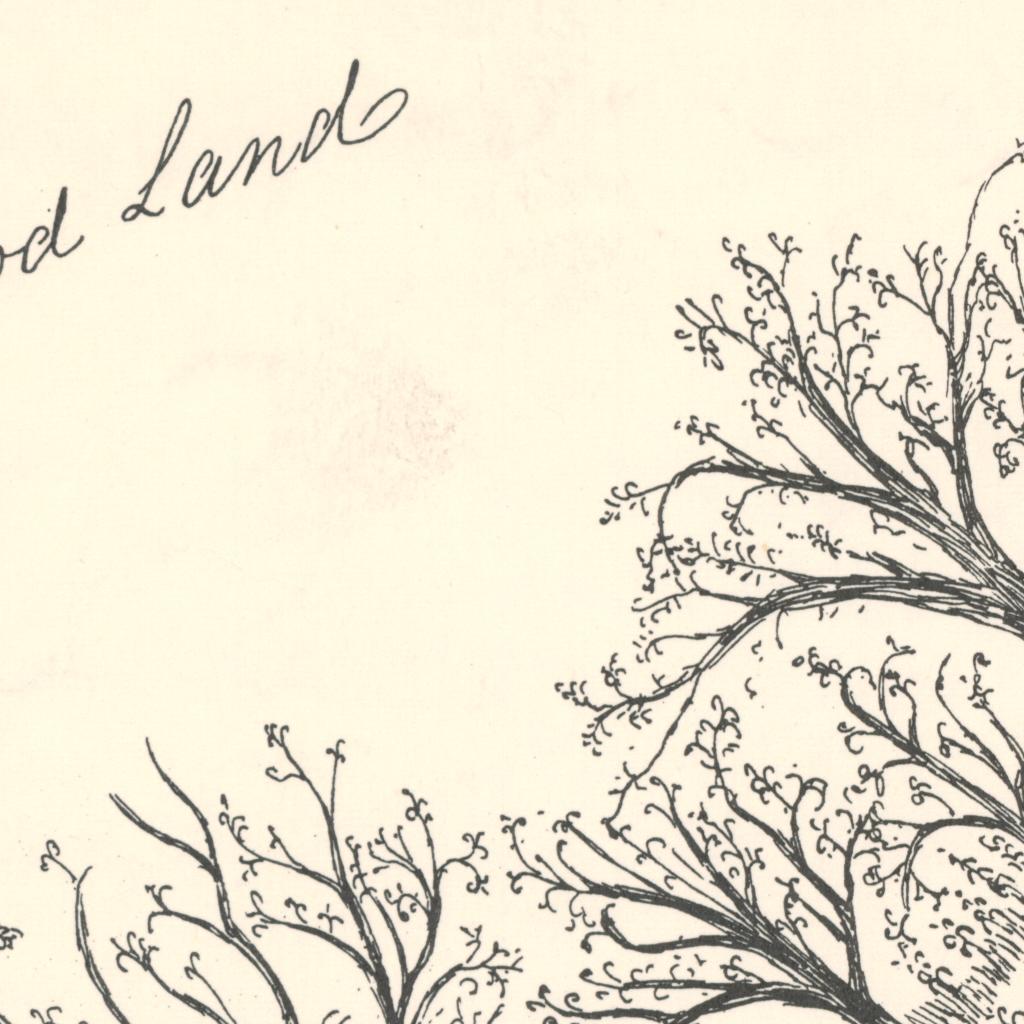 od Land